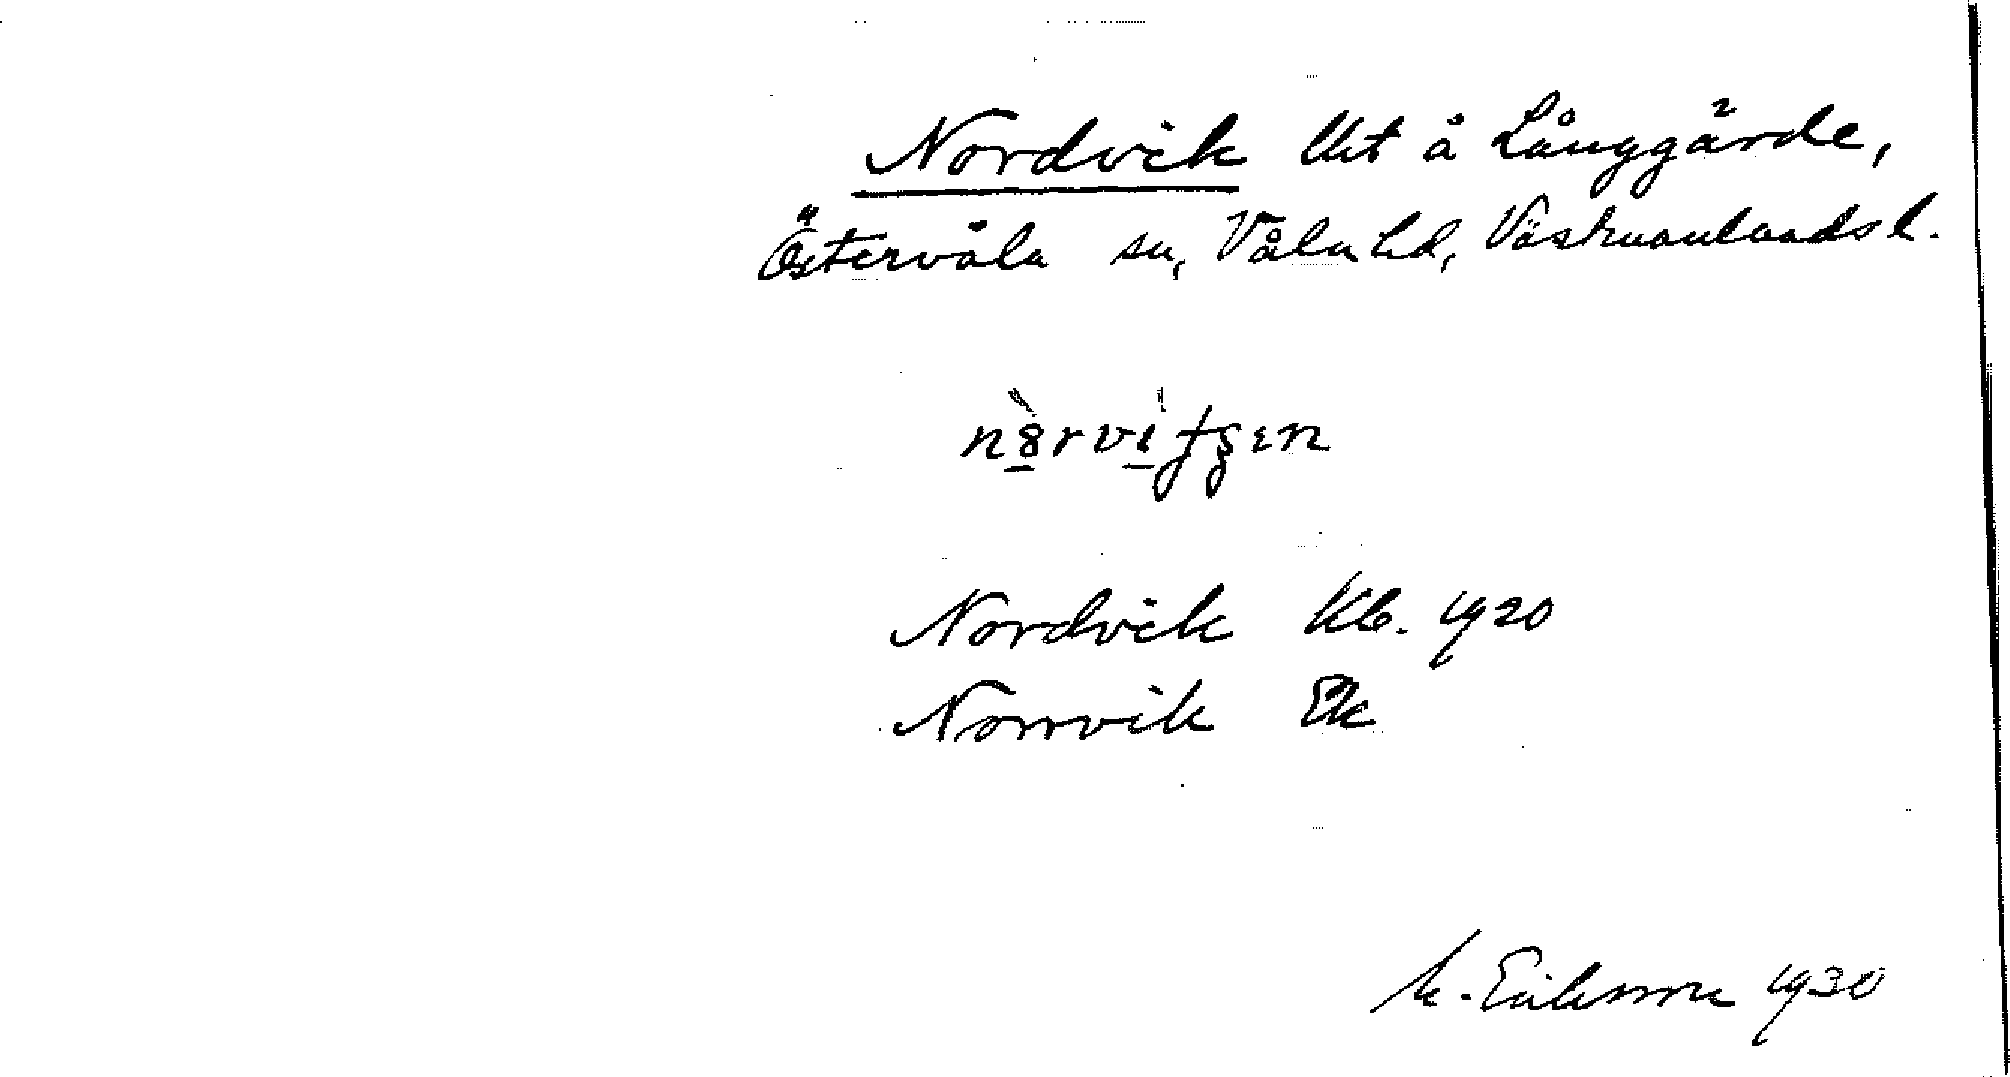 Nordvik lht å Långgärde,
Östervåla sn, Våla hd, Västmanlands l.
Nordvik Kb. 1920
Norrvik Ek
M. Eriksson 1930